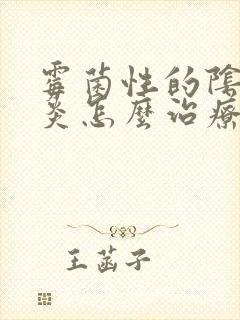 霉菌性的陰
炎怎麼治療
王菡子